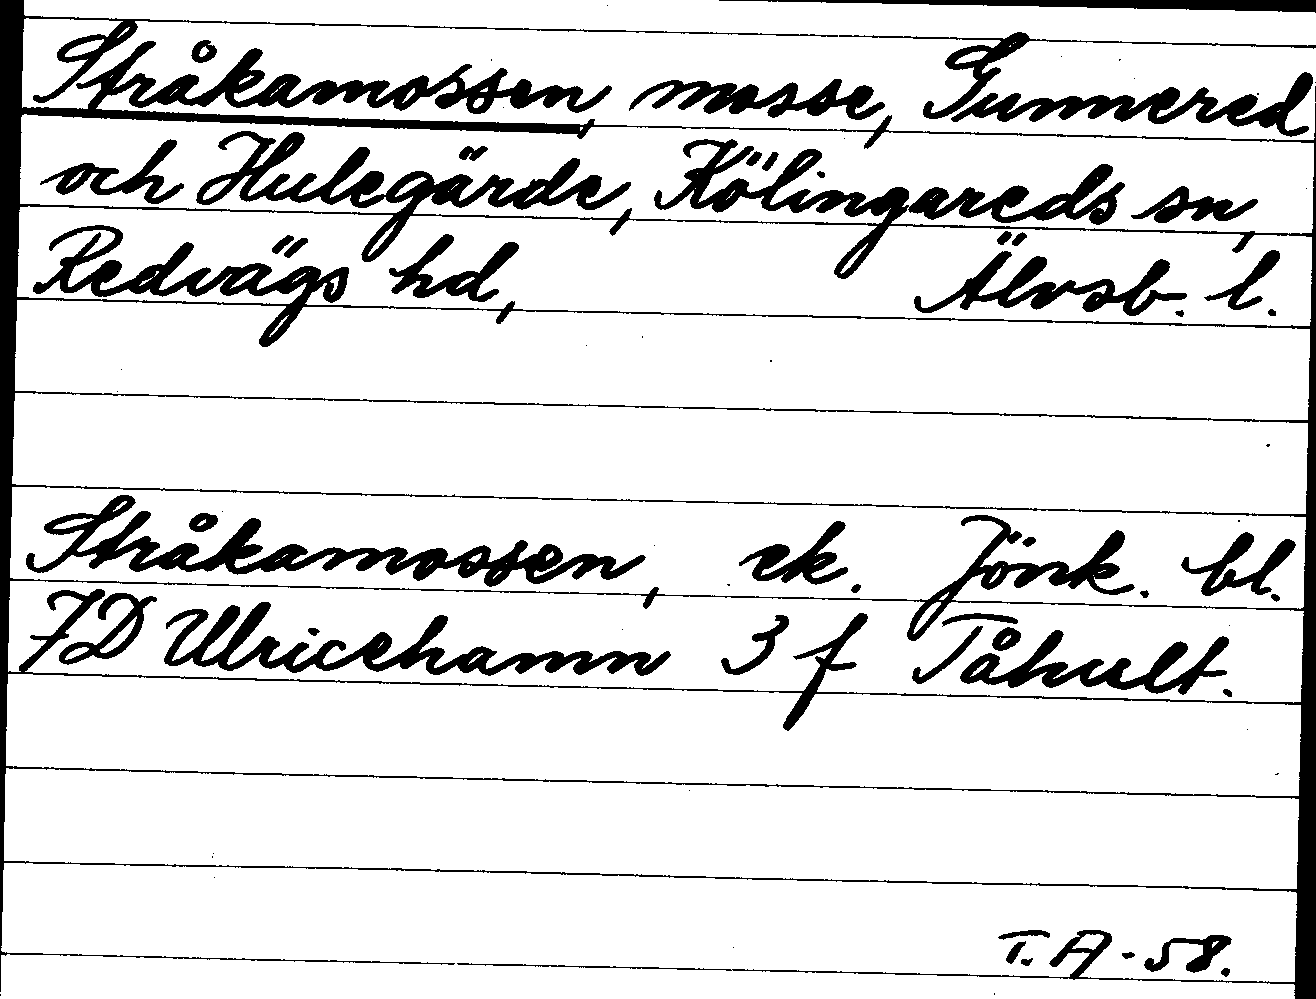 Stråkamossen, mosse, Gunnered
och Hulegärde, Kölingareds sn,
Redvägs hd, Älvsb. l.
Stråkamossen, ek. Jönk. bl.
7D Ulricehamn 3 f Tåhult.
T. A - 58.